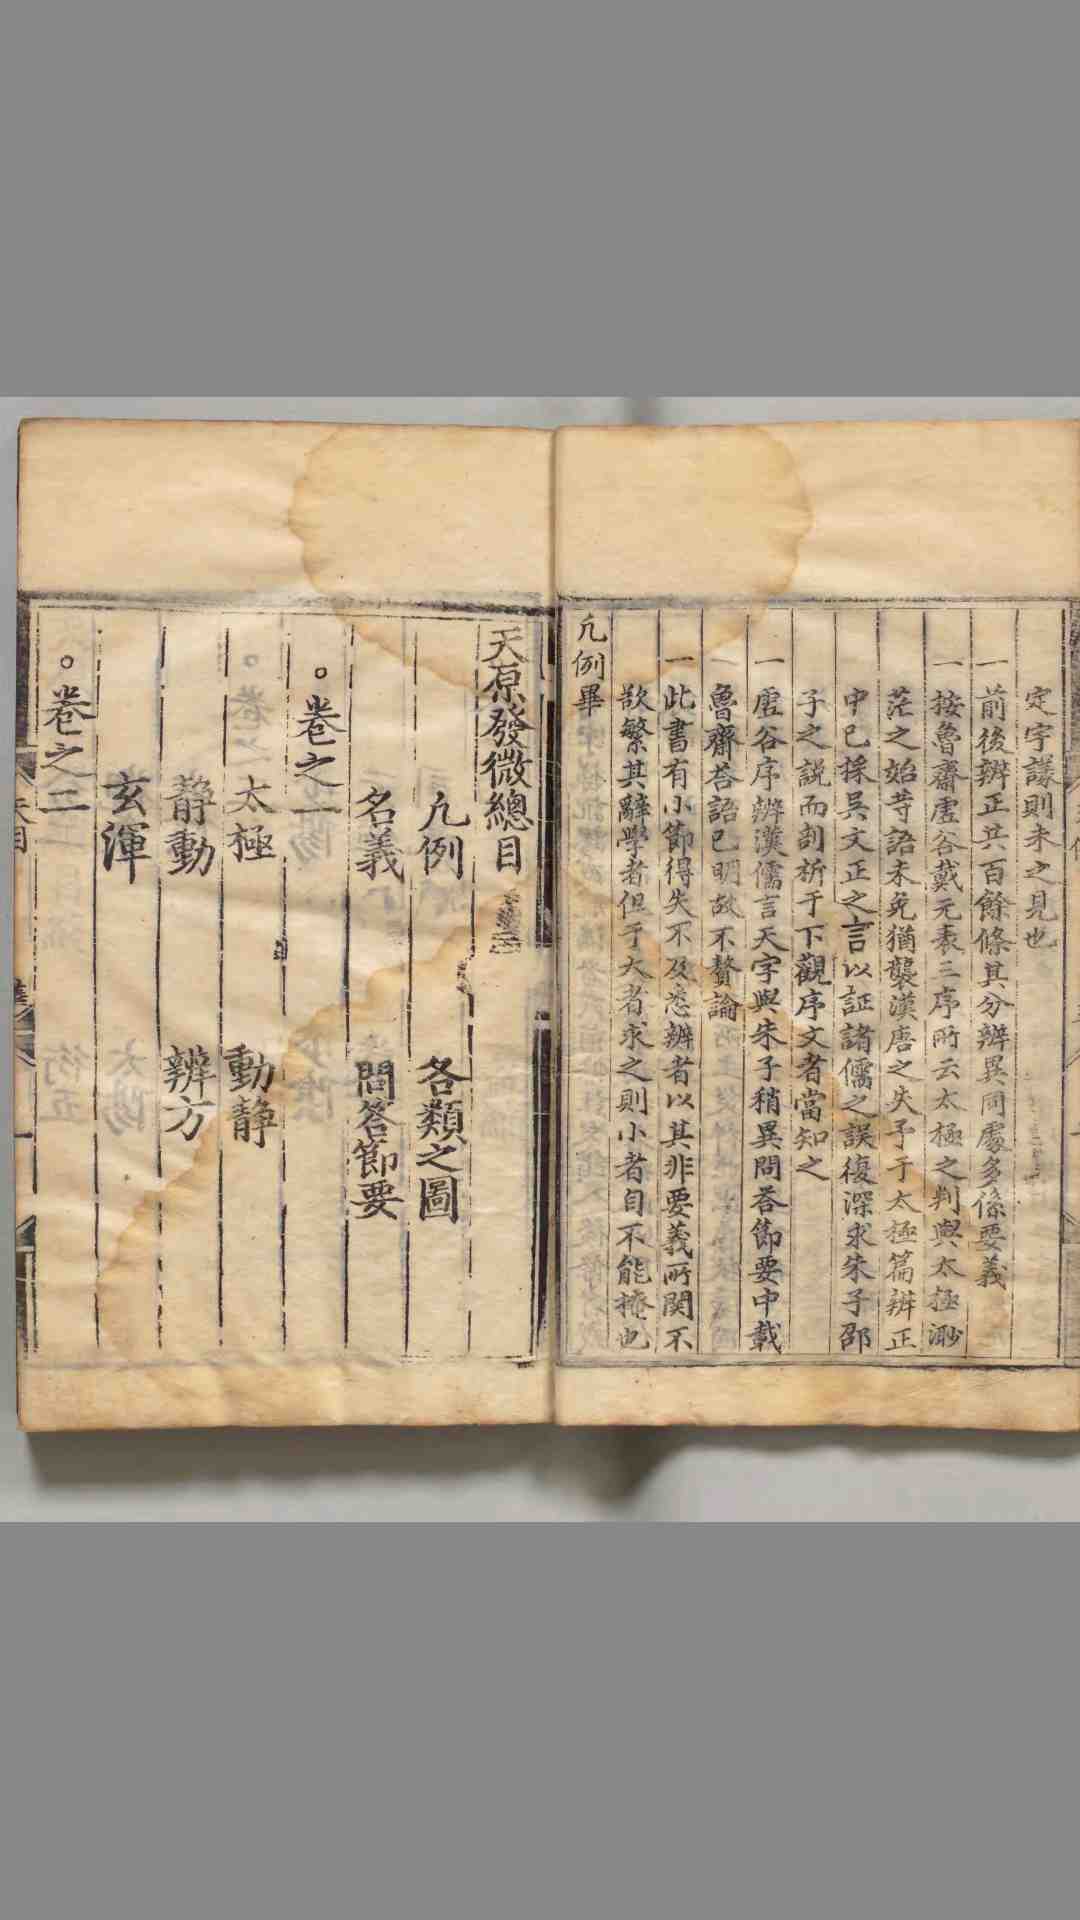 定字議則未之見也
一前後辨正共百餘條其分辨異同處多係要義
一按魯齋虗谷戴元表三序所云太極之判與太極渺
茫之始等語未免猶襲漢唐之失予于太極篇辨正
中已採吳文正之言以証諸儒之誤復深求朱子邵
子之説而剖析于下觀序文者當知之
一虗谷序辨漢儒言天字與朱子稍異問荅節要中載
魯齋荅語已明故不贅論
一此書有小節得失不及悉辨者以其非要義所関不
欲繁其辭學者但于大者求之則小者自不能掩也
凡例畢
天原發微總目
凡例 各類之圖
名義 問答節要
。卷之一
太極 動靜
靜動 辨方
玄渾
。卷之二